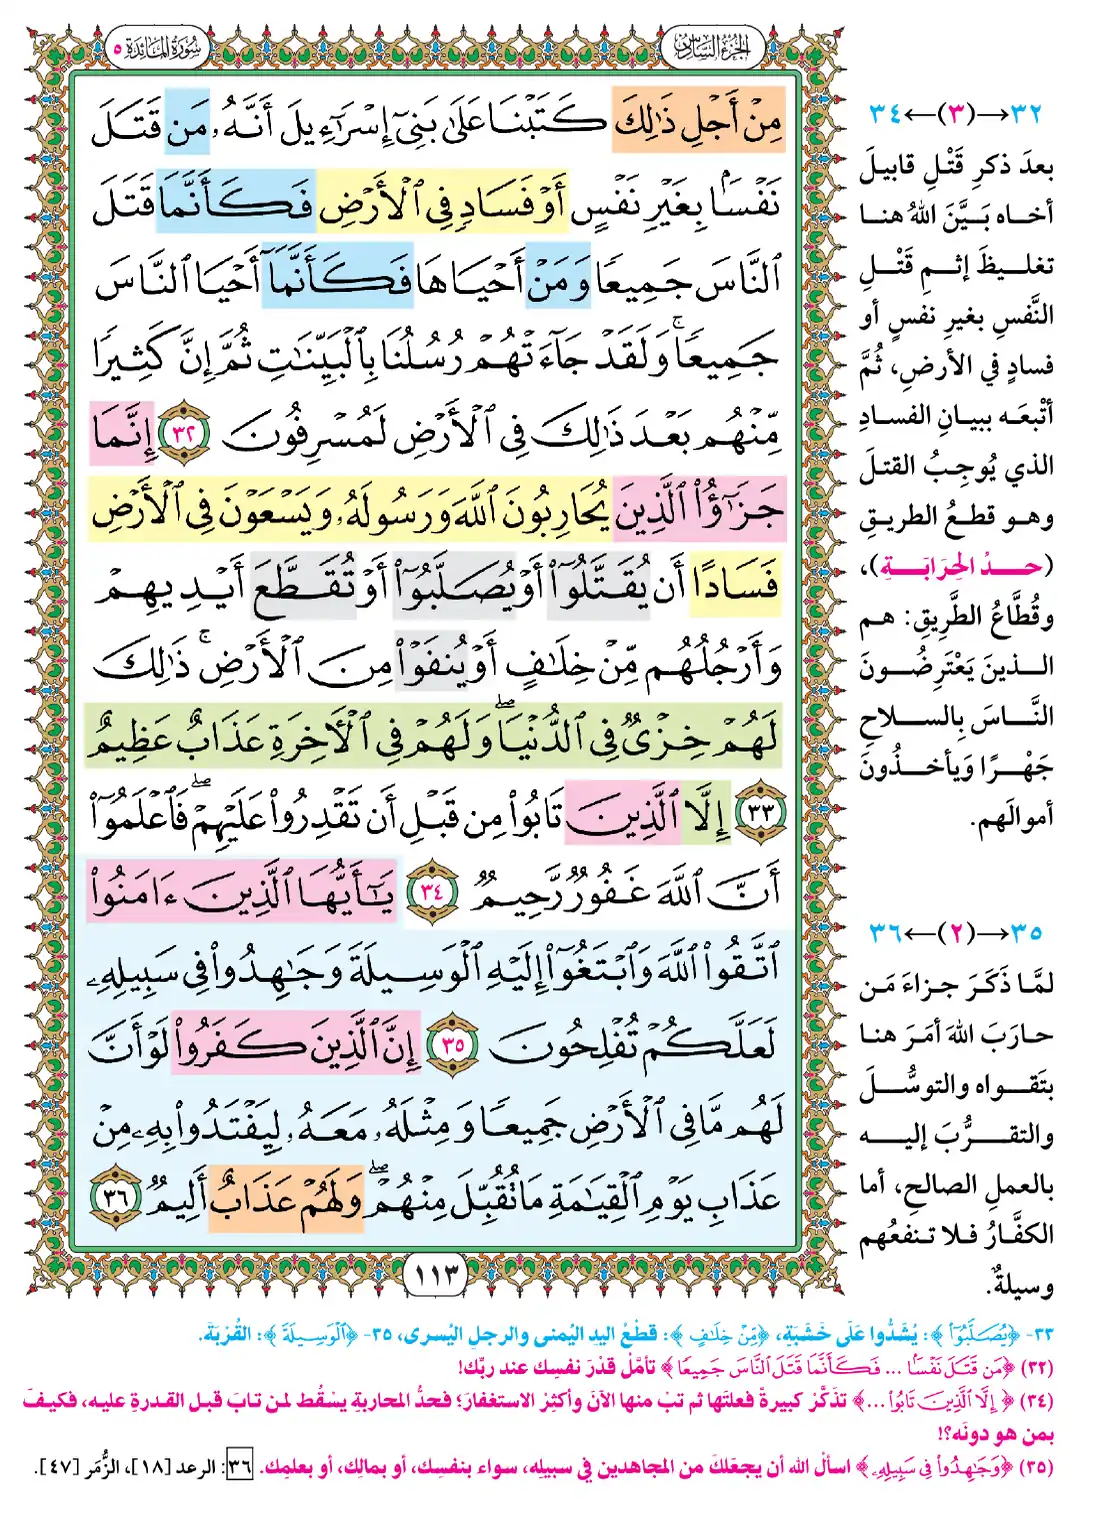 سُورَةُ المَائدَة ٥
الجُزءُ السَّادِسُ
مِنْ أَجْلِ ذَٰلِكَ كَتَبْنَا عَلَىٰ بَنِىٓ إِسْرَٰٓءِيلَ أَنَّهُۥ مَن قَتَلَ
نَفْسًۢا بِغَيْرِ نَفْسٍ أَوْ فَسَادٍ فِى ٱلْأَرْضِ فَكَأَنَّمَا قَتَلَ
ٱلنَّاسَ جَمِيعًا وَمَنْ أَحْيَاهَا فَكَأَنَّمَآ أَحْيَا ٱلنَّاسَ
جَمِيعًا ۚ وَلَقَدْ جَآءَتْهُمْ رُسُلُنَا بِٱلْبَيِّنَٰتِ ثُمَّ إِنَّ كَثِيرًا
مِّنْهُم بَعْدَ ذَٰلِكَ فِى ٱلْأَرْضِ لَمُسْرِفُونَ ٣٢ إِنَّمَا
جَزَٰٓؤُا۟ ٱلَّذِينَ يُحَارِبُونَ ٱللَّهَ وَرَسُولَهُۥ وَيَسْعَوْنَ فِى ٱلْأَرْضِ
فَسَادًا أَن يُقَتَّلُوٓا۟ أَوْ يُصَلَّبُوٓا۟ أَوْ تُقَطَّعَ أَيْدِيهِمْ
وَأَرْجُلُهُم مِّنْ خِلَٰفٍ أَوْ يُنفَوْا۟ مِنَ ٱلْأَرْضِ ۚ ذَٰلِكَ
لَهُمْ خِزْىٌ فِى ٱلدُّنْيَا ۖ وَلَهُمْ فِى ٱلْـَٔاخِرَةِ عَذَابٌ عَظِيمٌ
٣٣ إِلَّا ٱلَّذِينَ تَابُوا۟ مِن قَبْلِ أَن تَقْدِرُوا۟ عَلَيْهِمْ ۖ فَٱعْلَمُوٓا۟
أَنَّ ٱللَّهَ غَفُورٌ رَّحِيمٌ ٣٤ يَٰٓأَيُّهَا ٱلَّذِينَ ءَامَنُوا۟
ٱتَّقُوا۟ ٱللَّهَ وَٱبْتَغُوٓا۟ إِلَيْهِ ٱلْوَسِيلَةَ وَجَٰهِدُوا۟ فِى سَبِيلِهِۦ
لَعَلَّكُمْ تُفْلِحُونَ ٣٥ إِنَّ ٱلَّذِينَ كَفَرُوا۟ لَوْ أَنَّ
لَهُم مَّا فِى ٱلْأَرْضِ جَمِيعًا وَمِثْلَهُۥ مَعَهُۥ لِيَفْتَدُوا۟ بِهِۦ مِنْ
عَذَابِ يَوْمِ ٱلْقِيَٰمَةِ مَا تُقُبِّلَ مِنْهُمْ ۖ وَلَهُمْ عَذَابٌ أَلِيمٌ ٣٦
١١٣
٣٢→(٣)←٣٤
بعدَ ذكرِ قَتْلِ قابيلَ
أخاه بَيَّنَ اللهُ هنا
تغليظَ إثمِ قَتْلِ
النَّفسِ بغيرِ نفسٍ أو
فسادٍ في الأرضِ، ثُمَّ
أتْبعَه ببيانِ الفسادِ
الذي يُوجِبُ القتلَ
وهو قطعُ الطريقِ
(حدُ الحِرَابَةِ)،
وقُطَّاعُ الطَّرِيقِ: هم
الذينَ يَعْتَرِضُونَ
النَّاسَ بِالسلاحِ
جَهْرًا وَيأخذُونَ
أموالَهم.
٣٥→(٢)←٣٦
لمَّا ذَكَرَ جزاءَ مَن
حارَبَ اللهَ أمَرَ هنا
بتَقواه والتوسُّلَ
والتقرُّبَ إليه
بالعملِ الصالحِ، أما
الكفَّارُ فلا تنفعُهم
وسيلةٌ.
٣٣- ﴿يُصَلَّبُوٓا۟﴾: يُشَدُّوا عَلَى خَشَبَةٍ، ﴿مِّنْ خِلَٰفٍ﴾: قطْعُ اليدِ اليُمنى والرجلِ اليُسرى، ٣٥- ﴿ٱلْوَسِيلَةَ﴾: القُرْبَةَ.
(٣٢) ﴿مَن قَتَلَ نَفْسًۢا ... فَكَأَنَّمَا قَتَلَ ٱلنَّاسَ جَمِيعًا﴾ تأمَّلْ قدْرَ نفسِك عند ربِّك!
(٣٤) ﴿إِلَّا ٱلَّذِينَ تَابُوا۟ ...﴾ تذكَّرْ كبيرةً فعلتَها ثم تبْ منها الآنَ وأكثِرْ الاستغفارَ؛ فحدُّ المحاربةِ يسْقُط لمن تابَ قبل القدرةِ عليه، فكيفَ
بمن هو دونَه؟!
(٣٥) ﴿وَجَٰهِدُوا۟ فِى سَبِيلِهِۦ﴾ اسألْ الله أن يجعلَكَ من المجاهدين في سبيلِه، سواء بنفسِك، أو بمالِك، أو بعلمِك. ٣٦: الرعد [١٨]، الزُّمَر [٤٧].